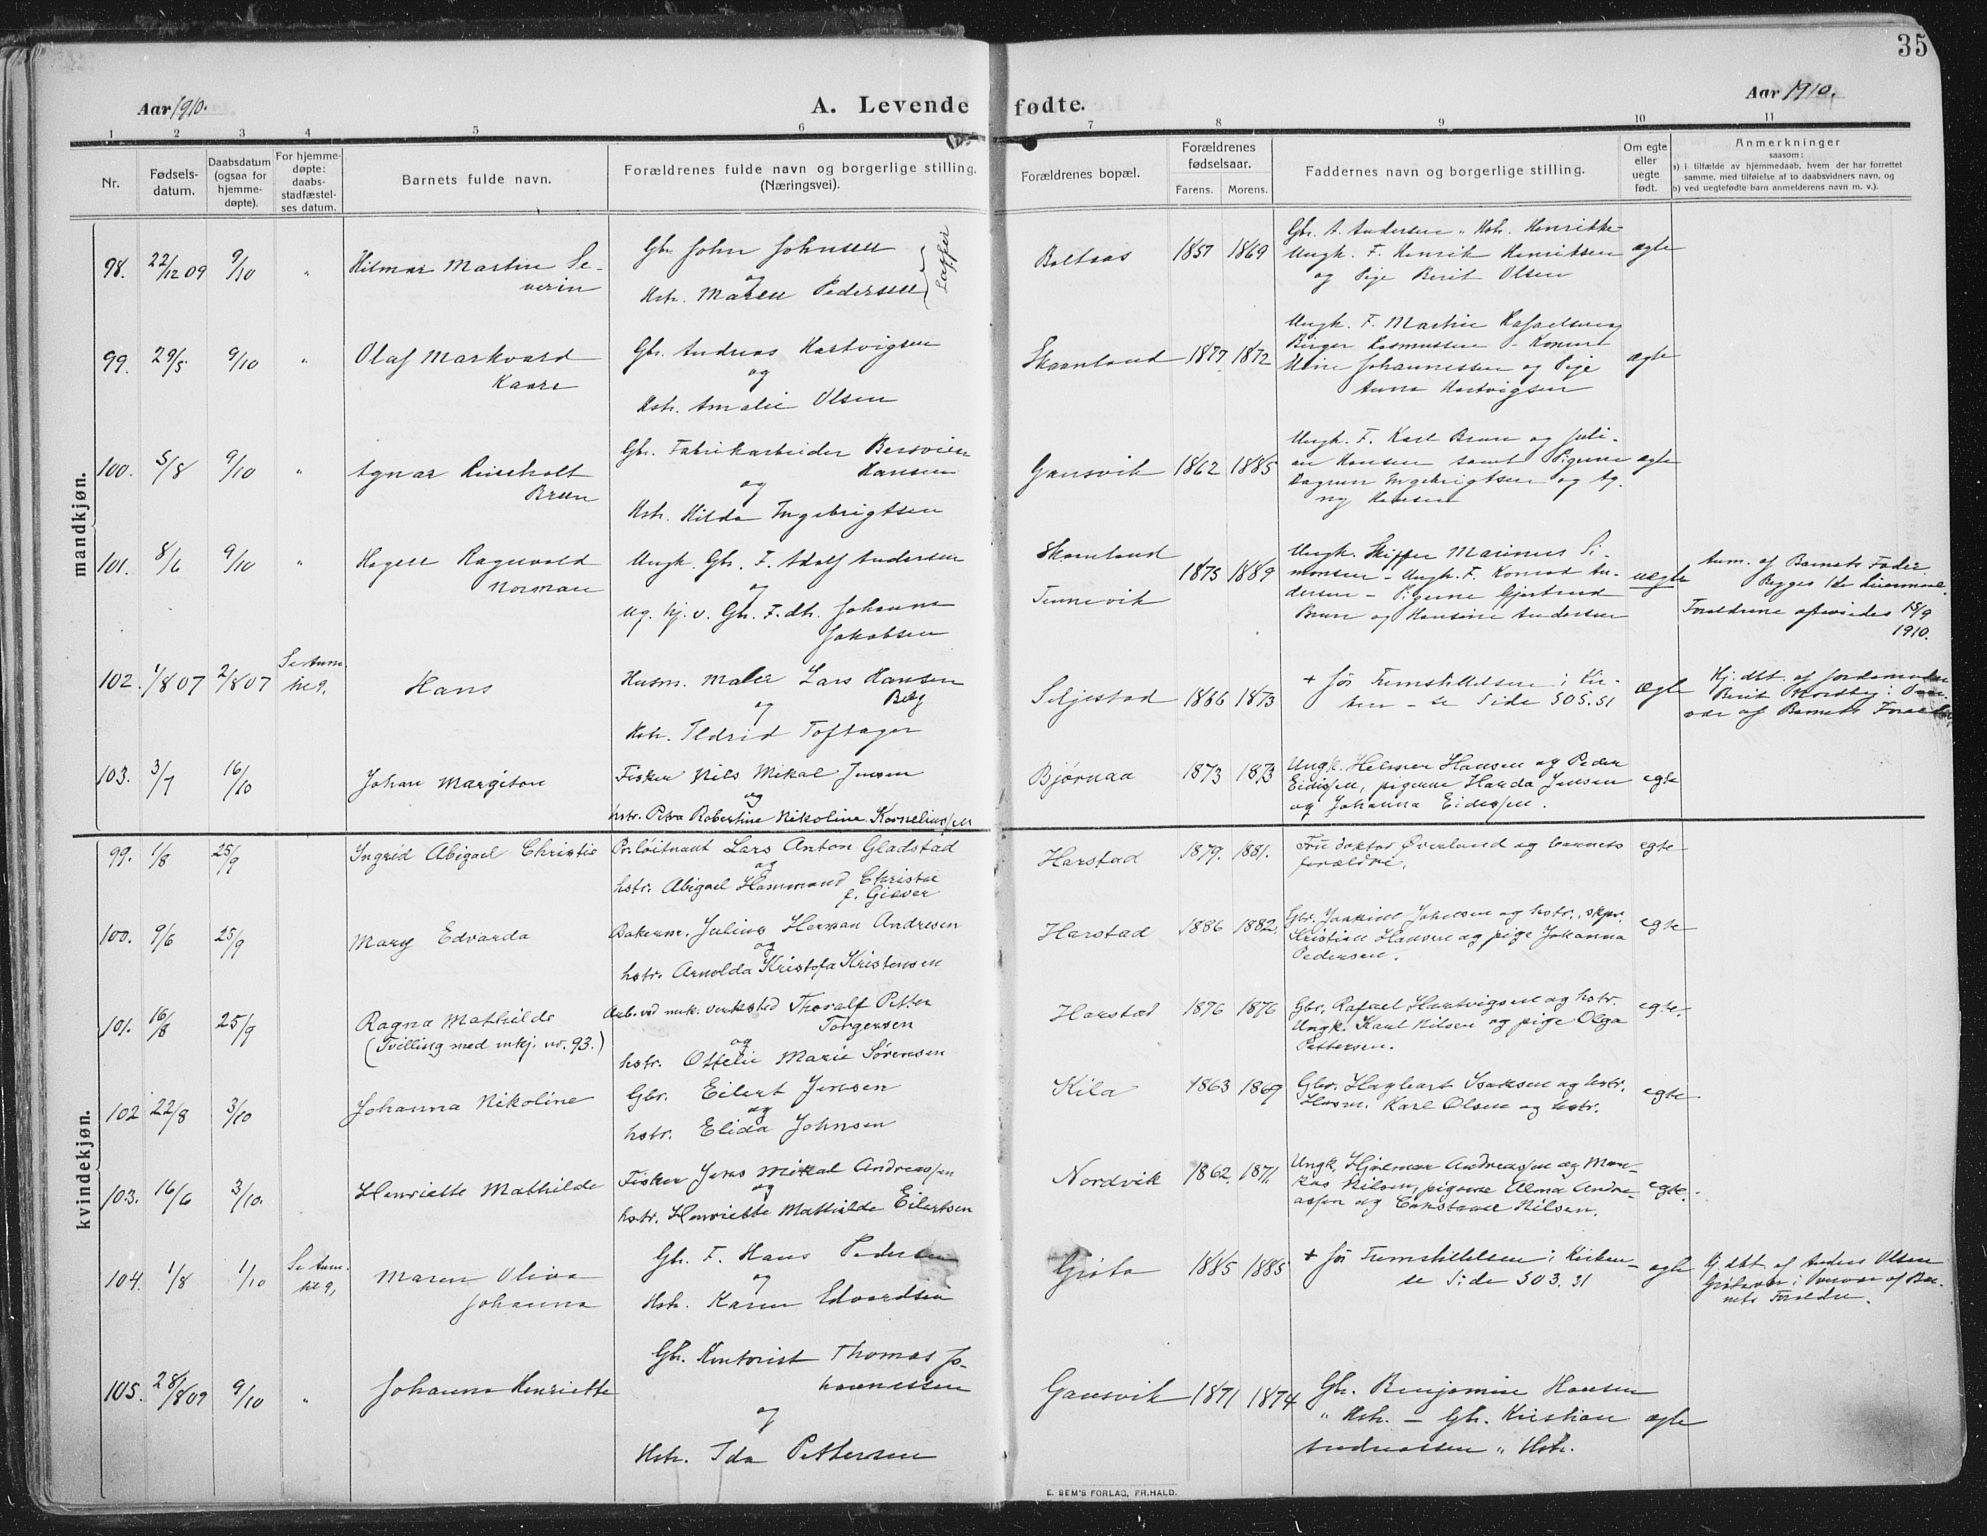 35
Aar 1910.
A. Levende fødte.
Aar 1910.
1 2 3 4 5 6 7 8 9 10 11
Nr.
Fødsels-
datum.
Daabsdatum
(ogsaa for
hjemme-
døpte).
For hjemme-
døpte:
daabs-
stadfæstel-
ses datum.
Barnets fulde navn.
Forældrenes fulde navn og borgerlige stilling.
(Næringsvei).
Forældrenes bopæl.
Forældrenes
fødselsaar.
Farens. Morens.
Faddernes navn og borgerlige stilling.
Om egte
eller
uegte
født.
Anmerkninger
saasom:
a) i tilfælde av hjemmedaab, hvem der har forrettet
samme, med tilføielse af to daabsvidners navn, og
b) ved uegtefødte barn anmelderens navn m. v.).
mandkjøn.
98. 22/12 09 9/10 "
Hilmar Martin Se-
verin
Gbr. John Johnsen
og
Hstr. Maren Pedersen
Lapper
Boltaas 1857 1869
Gbr. A. Andersen " Hstr. Henrikke
Ungk. F. Henrik Henriksen
og Pige Berit Olsen
ægte
99. 29/5 9/10 "
Olaf Markvard
Kaare
Gbr. Andreas Hartvigsen
og
Hstr. Amalie Olsen
Skaanland 1877 1872
Ungk. F. Martin Rafaelsen
Birger Rasmussen - Konen
Johannessen og Pige
Anna Hartvigsen
ægte
100. 5/8 9/10 "
Agnar Reinholt
Breen
Gbr. Fabrikarbeider Bersvien
Hansen
og
Hstr. Hilda Ingebrigtsen
Gansvik 1862 1885
Ungk. F. Karl Brun og Juli-
an Hansen samt Pigerne
Ragnen Ingebrigtsen og Ag-
ny Hansen
ægte
101. 8/6 9/10 "
Hagen Ragnvald
Norman
Ungk. Gbr. F. Adolf Andersen
og
ug. kj. v. Gbr. F. dtr. Johanna
Jakobsen
Skaanland
Tennevik
1875 1889
Ungk. Skipper Marinus Si-
monsen - Ungk. F. Konrad An-
dersen - Pigerne Gjertrud
Brun og Hansine Andersen
uægte
Anm. af Barnets Fader
Begges 1de Leiermaal.
Forældrene ægteviedes 15/9
1910.
102. 1/8 07 2/8 07
Se Anm.
Hans
Husm. Maler Lars Hansen
Berg
og
Hstr. Ildrid Toftager
Seljestad 1866 1873
+ før Fremstillelsen i Kir-
ken - se Side 505.51
Ægte
Hj. dbt. af Jordemoder
Berit Nordby i Over-
vær af Barnets Foræl
103. 3/7 16/10
Johan Margiton
Fisker Nils Mikal Jensen
og
hstr. Petra Robertine Nikoline Kornelius/en
Bjørnaa 1873 1873
Ungk. Helmer Hansen og Peder
Eidis/en, pigerne Harda Jensen
og Johanna Eides/en.
egte
kvindekjøn.
99. 1/8 25/9
Ingrid Abigael Christie
Pr.løitnant Lars Anton Gladstad
og
hstr. Abigael Hammond Christie
f. Giæver
Harstad 1879. 1881.
Fru doktor Øverland og barnets
forældre.
egte
100. 9/6 25/9
Mary Edvarda
Bakerm. Julius Herman Andresen
og
hstr. Arnolda Kristofa Kristensen
Harstad 1886 1882.
Gbr. Joakim Johnsen og hstr., skpr.
Kristian Hansen og pige Johanna
Pedersen.
egte
101. 16/8 25/9
Ragna Mathilde
(Tvilling med mkj. nr. 93.)
Arb. ved mek. verksted Thoralf Petter
Torgersen
og
hstr. Ottelie Marie Sørensen
Harstad 1876 1876
Gbr. Rafael Hartvigsen og hstr.
Ungk. Karl Nilsen og pige Olga
Pettersen.
egte.
102 22/8 3/10
Johanna Nikoline
Gbr. Eilert Jensen
og
hstr. Elida Johnsen
Kila 1863 1869
Gbr. Hagbart Isaksen og hstr.
Husm. Karl Olsen og hstr.
egte
103. 16/6 3/10.
Henriette Mathilde
Fisker Jens Mikal Andreas/en
og
hstr. Henriette Mathilde Eilertsen
Nordvik 1862. 1871.
Ungk. Hjalmar Andreas/en og Mar-
kus Nilsen, pigerne Alma Andre-
as/en og Constanse Nilsen.
egte.
104. 1/8 1/10
Se Anm.
Maren Oliva
Johanna
Gbr. F. Hans Pedersen
og
Hstr. Karen Edvardsen
Grøta 1885 1885
+ før Fremstillelsen i Kirken
se Side 503.31
ægte
Hj. dbt. af Anders Olsen
Grøtavær i Overvær af Bar-
nets Forældre.
105. 28/8 09 9/10 "
Johanna Henriette
Gbr. Kontorist Thomas Jo-
hannessen
og
Hstr. Ida Pettersen
Gansvik 1871 1874
Gbr. Benjamin Hansen
" Hstr. - Gbr. Kristian
Andreassen " Hstr.
ægte
E. SEM'S FORLAG, FR.HALD.